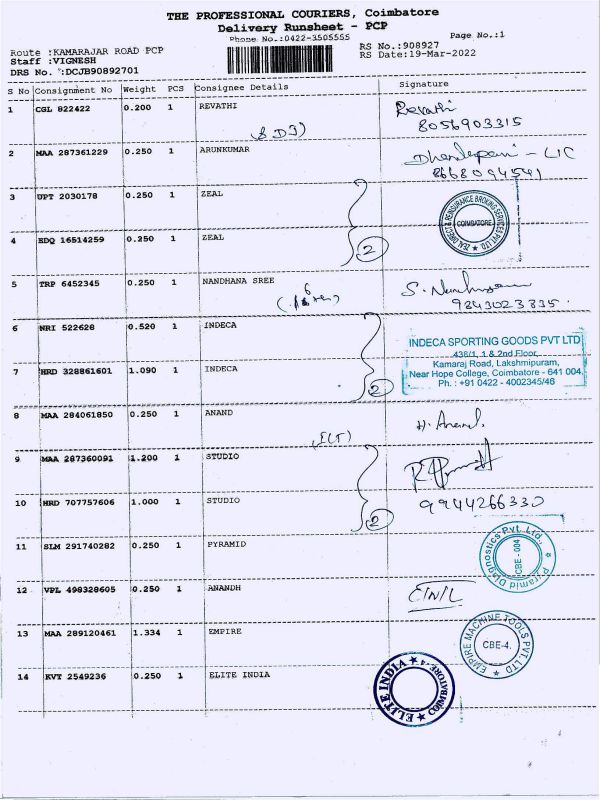 THE PROFESSIONAL COURIERS, Coimbatore
Delivery Runsheet - PCP
Phone No.:0422-3505555
Page No.:1
Route :KAMARAJAR ROAD PCP
RS No.:908927
Staff :VIGNESH
RS Date:19-Mar-2022
DRS No. :DCJB90892701
S No Consignment No Weight PCS Consignee Details Signature
1 CGL 822422 0.200 1 REVATHI Revathi
8056903315
2 MAA 287361229 0.250 1 ARUNKUMAR - LIC
8668094541
3 UPT 2030178 0.250 1 ZEAL
ZEAL DIRECT & REINSURANCE BROKING SERVICES PVT LTD
COIMBATORE
4 EDQ 16514259 0.250 1 ZEAL
2
5 TRP 6452345 0.250 1 NANDHANA SREE
9843023335
6 NRI 522628 0.520 1 INDECA
INDECA SPORTING GOODS PVT LTD
438/1, 1 & 2nd Floor,
Kamaraj Road, Lakshmipuram,
Near Hope College, Coimbatore - 641 004.
Ph. : +91 0422 - 4002345/46
7 HRD 328861601 1.090 1 INDECA
2
8 MAA 284061850 0.250 1 ANAND H. Anand.
9 MAA 287360091 1.200 1 STUDIO
10 HRD 707757606 1.000 1 STUDIO 9944266330
2
11 SLM 291740282 0.250 1 PYRAMID
Pyramid Diagnostics Pvt. Ltd.,
CBE - 004
12 VPL 498328605 0.250 1 ANANDH
13 MAA 289120461 1.334 1 EMPIRE
EMPIRE MACHINE TOOLS PVT. LTD
CBE-4.
14 KVT 2549236 0.250 1 ELITE INDIA
ELITE INDIA
COIMBATORE-4